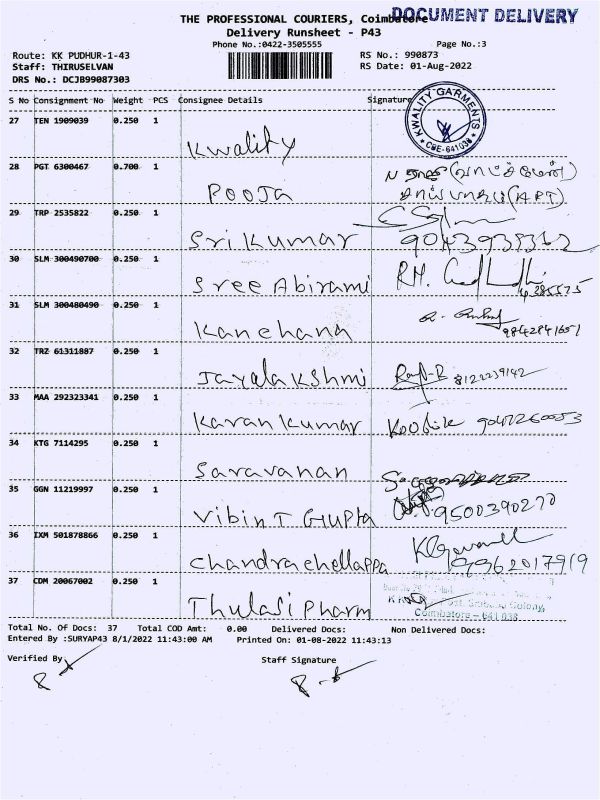 THE PROFESSIONAL COURIERS, Coimbatore
DOCUMENT DELIVERY
Delivery Runsheet - P43
Phone No.:0422-3505555
Page No.:3
Route: KK PUDHUR-1-43
RS No.: 990873
Staff: THIRUSELVAN
RS Date: 01-Aug-2022
DRS No.: DCJB99087303
S No Consignment No Weight PCS Consignee Details Signature
KWALITY GARMENTS
* CBE-641038 *
27 TEN 1909039 0.250 1
Kwality
28 PGT 6300467 0.700 1
Pooja
29 TRP 2535822 0.250 1
Sri Kumar
30 SLM 300490700 0.250 1
Sree Abirami
31 SLM 300480490 0.250 1
Kanchana 9842841651
32 TRZ 61311887 0.250 1
Jayalakshmi 8122239142
33 MAA 292323341 0.250 1
Karan Kumar
34 KTG 7114295 0.250 1
Saravanan
35 GGN 11219997 0.250 1
Vibin T Gupta 9500390270
36 IXM 501878866 0.250 1
Chandrachellappa 9962017919
37 CDM 20067002 0.250 1
Thulasi Pharm
Coimbatore - 641 038
Total No. Of Docs: 37 Total COD Amt: 0.00 Delivered Docs: Non Delivered Docs:
Entered By :SURYAP43 8/1/2022 11:43:00 AM Printed On: 01-08-2022 11:43:13
Verified By
Staff Signature